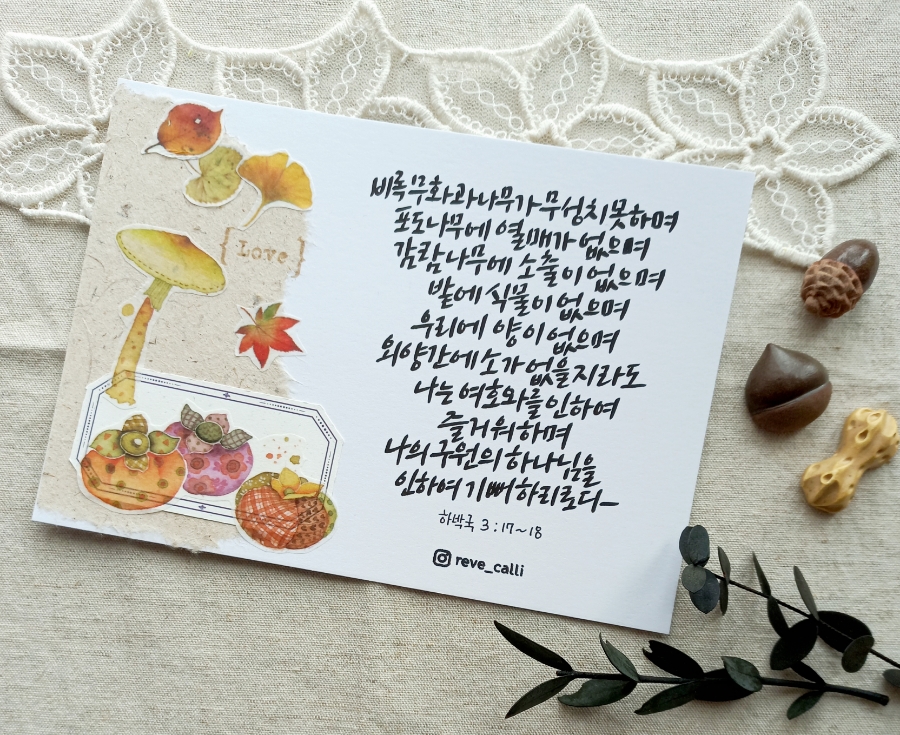 { Love }
비록 무화과나무가 무성치 못하며
포도나무에 열매가 없으며
감람나무에 소출이 없으며
밭에 식물이 없으며
우리에 양이 없으며
외양간에 소가 없을지라도
나는 여호와를 인하여
즐거워하며
나의 구원의 하나님을
인하여 기뻐하리로다
하박국 3:17~18
reve_calli